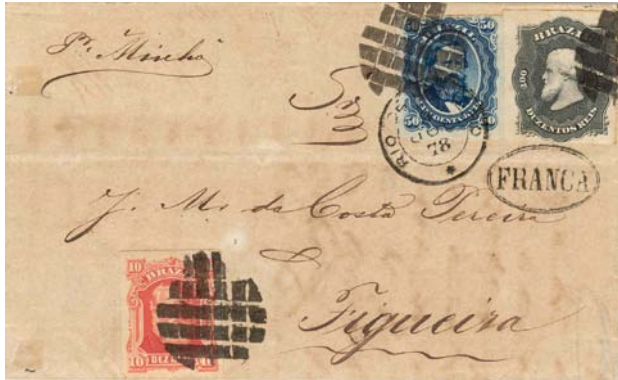 Pr. Minho
50 BRAZIL 50
50 CINCOENTA REIS 50
BRAZIL
200
DUZENTOS REIS
RIO
78
Snr
FRANCA
J. M. da Costa Pereira
Figueira
10 BRAZIL
10 DEZ